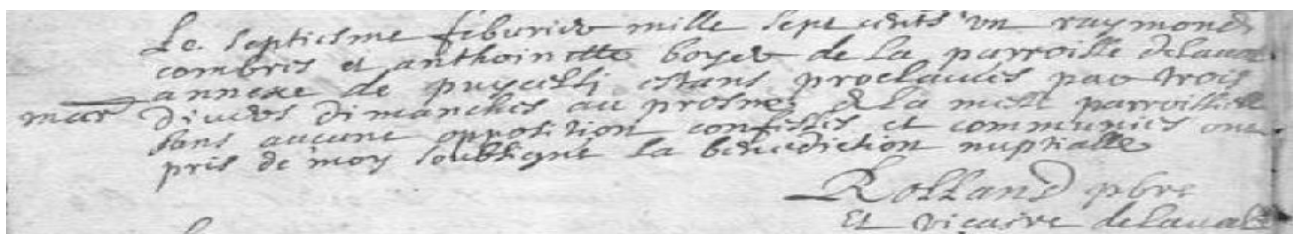 Le septiesme feburier mille sept cents un raymond
combres et anthoinette boyer de la parroisse delaval
annexe de puycelsi estans proclamés par trois
mar divers dimanches au prosne de la messe parroissielle
sans aucune opposition confessés et communiés ont
pris de moy soubsigné la benediction nuptialle
Rolland pbre
et vicaire delaval